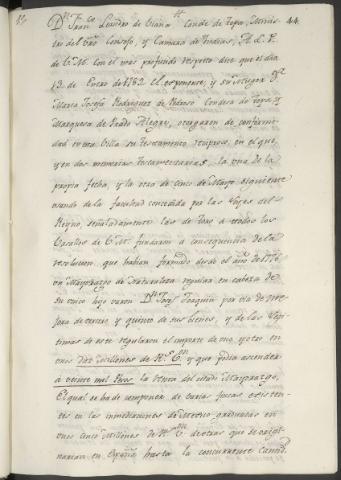 44
Dn. Franco. Leandro de Viana Conde de Tepa, Minis-
tro del Sup.mo Consejo, y Camara de Indias, A. L. P.
de V. M. con el mas profundo respeto dice que el dia
12 de Enero de 1782 el exponente, y su esposa Da.
Maria Josefa Rodriguez de Pedroso Condesa de Tepa, y
Marquesa de Prado Alegre, otorgaron de conformi-
dad en esta Villa su testamento reciproco, en el que,
y en dos memorias testamentarias, la una de la
propia fecha, y la otra de cinco de Marzo siguiente
usando de la facultad concedida por las Leyes del
Reyno, señaladamente las de Toro a todos los
Vasallos de V. M. fundaron a consequencia de la
resolucion que habian formado desde el año de 1776
un Mayorazgo de Naturaleza regular en cabeza de
su unico hijo varon Dn. Josef Joaquin por via de me-
jora de tercio y quinto de sus bienes, y de las legi-
timas de este regularon el importe de uno, y otro en
unos diez Millones de Rs. Vn. y que podia ascender
a veinte mil Pesos la renta del citado Mayorazgo.
El qual se ha de componer de varias fincas existen-
tes en las inmediaciones de Mexico graduadas en
unos cinco Millones de Rs. Vn. de otras que se compra-
narian en España hasta la concurrente cantid.